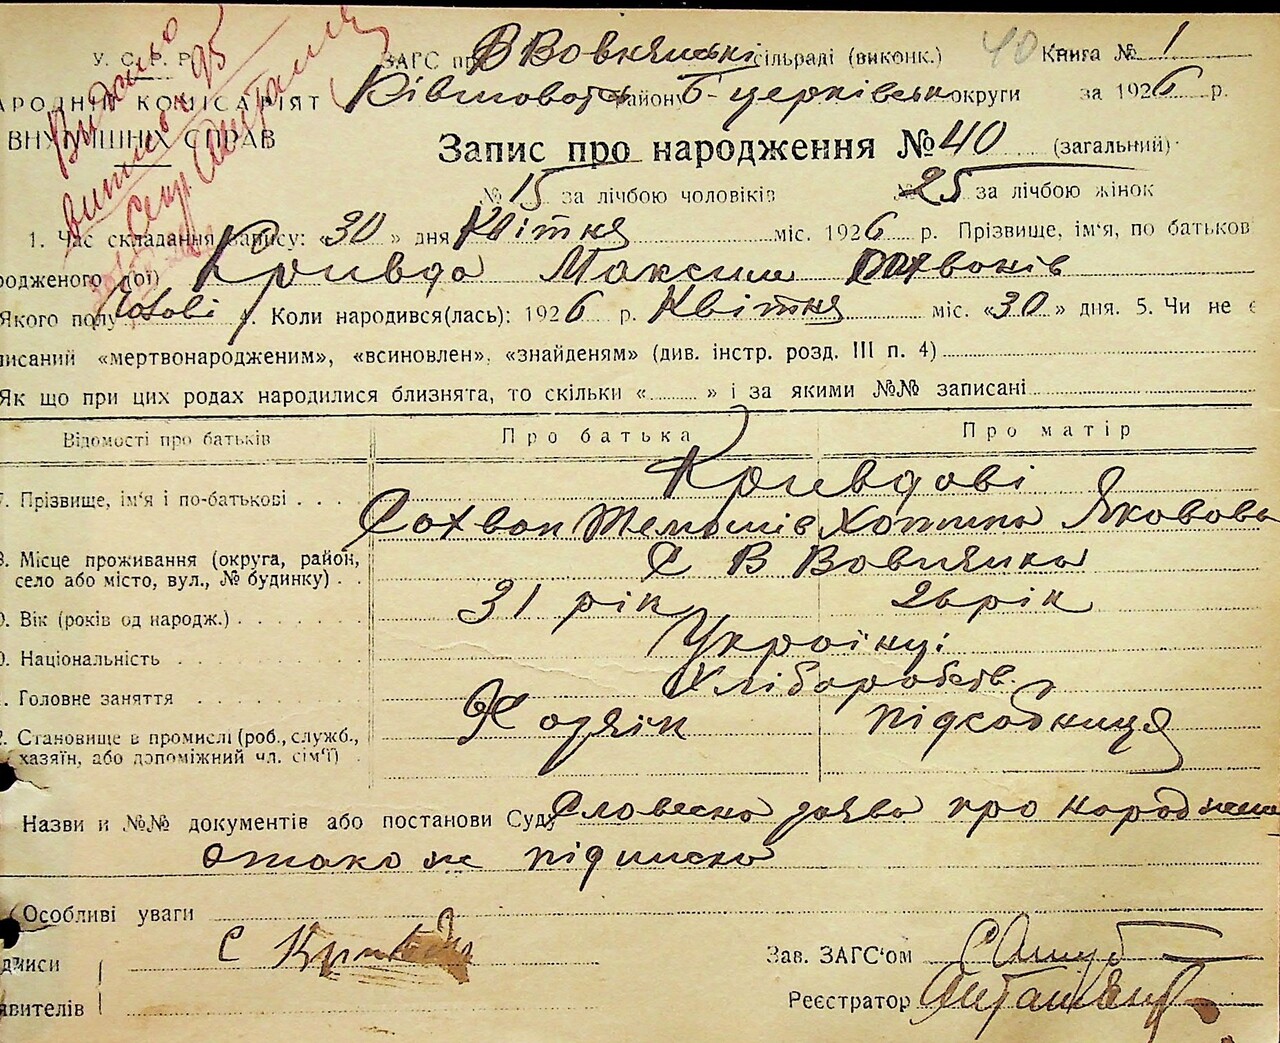 У. С. Р. Р. ЗАГС при В Вовнянські сільраді (виконк.) 40 Книга № 1
АРОДНІЙ КОМІСАРІЯТ району Б-церківськ округи за 1926 р.
ВНУТРІШНІХ СПРАВ
Видано
витяг 95
Запис про народження № 40 (загальний)
№ 15 за лічбою чоловіків № 25 за лічбою жінок
1. Час складання запису: «30» дня Квітня міс. 1926 р. Прізвище, ім'я, по батьков
родженого (ої) Кривда Максим Сахвонів
Якого полу 4. Коли народився(лась): 1926 р. Квітня міс. «30» дня. 5. Чи не є
писаний «мертвонародженим», «всиновлен», «знайденям» (див. інстр. розд. III п. 4)
Як що при цих родах народилися близнята, то скільки « » і за якими №№ записані
Відомості про батьків Про батька Про матір
7. Прізвище, ім'я і по-батькові Кривдові
Сахвон Хотина Яковова
8. Місце проживання (округа, район, село або місто, вул., № будинку) С В Вовнянка
9. Вік (років од народж.) 31 рік 26 рік
0. Національність Українці
1. Головне заняття Хлібаробств.
2. Становище в промислі (роб., служб., хазяїн, або допоміжний чл. сім'ї) Хазяїн підсобниця
Назви и №№ документів або постанови Суду Словесна заява про народження
а также підписка
Особливі уваги
дписи С Кривда Зав. ЗАГС'ом
явителів Реєстратор